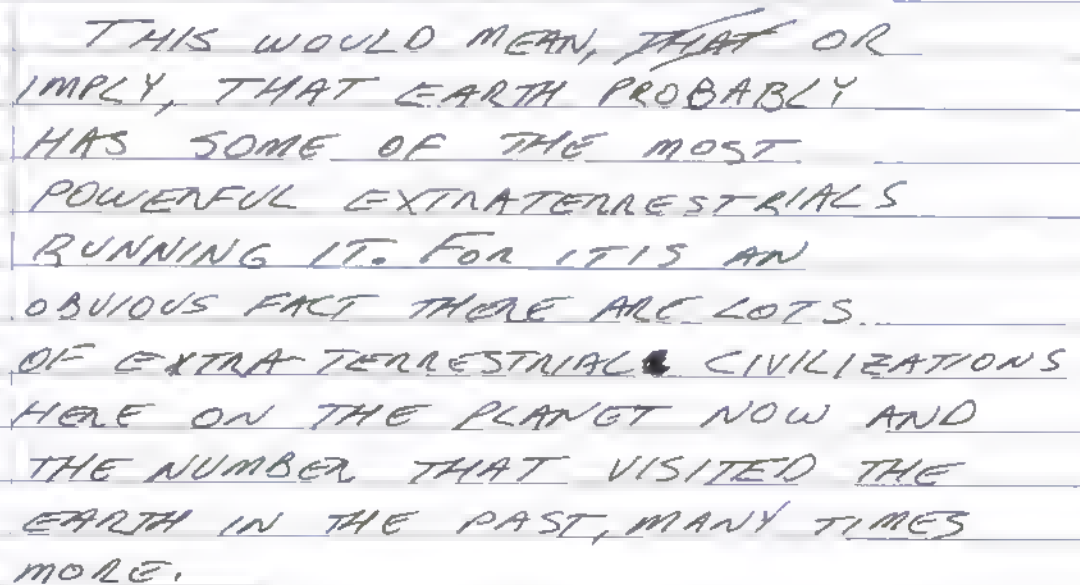 THIS WOULD MEAN, THAT OR
IMPLY, THAT EARTH PROBABLY
HAS SOME OF THE MOST
POWERFUL EXTRATERRESTRIALS
RUNNING IT. FOR IT IS AN
OBVIOUS FACT THERE ARE LOTS
OF EXTRA-TERRESTRIAL CIVILIZATIONS
HERE ON THE PLANET NOW AND
THE NUMBER THAT VISITED THE
EARTH IN THE PAST, MANY TIMES
MORE.